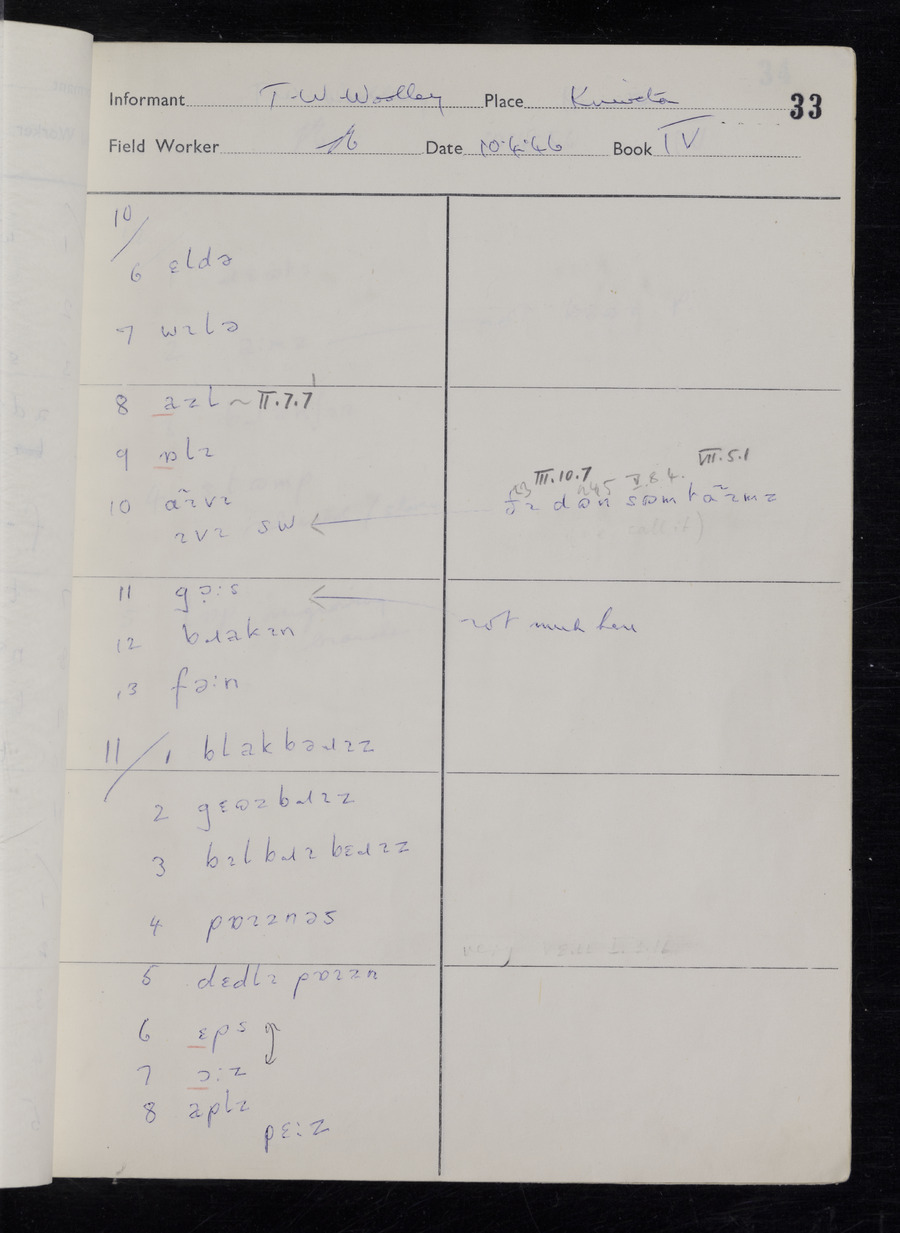 Informant T. W. Woolley Place Kniveton 33
Field Worker Date 10.4.46 Book IV
10/
6 ɛldə
7 wɪlə
8 azl ~ II.7.7
9 ɒlɪ
VII.5.1
III.10.7 V.8.4.
10 aɪvɪ
ɪvɪ SW ←
11 gɔ:s ← not much here
12 bɹakɪn
13 fə:n
11/ 1 blakbəɹɪz
2 gɛʊzbɹɪz
3 bɪlbɹɪ bɛɹɪz
4 pɒɪznəs
5 dɛdlɪ pɒɪzn
6 ɛps
7 ɔ:z
8 aplz
pɛ:z